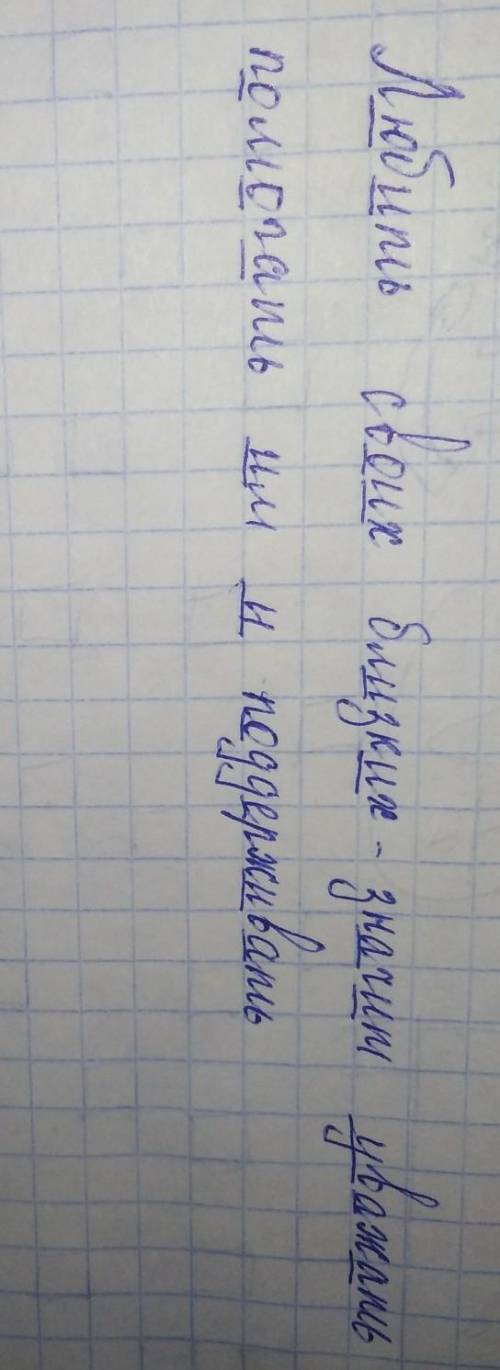 Любить своих близких - значит уважать
помогать им и поддерживать